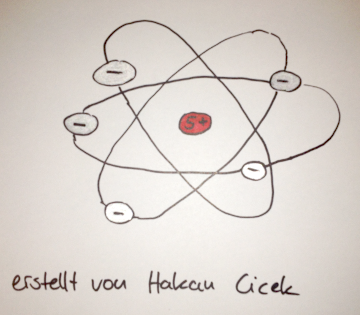 −
−
−
5+
−
−
erstellt von Hakan Cicek